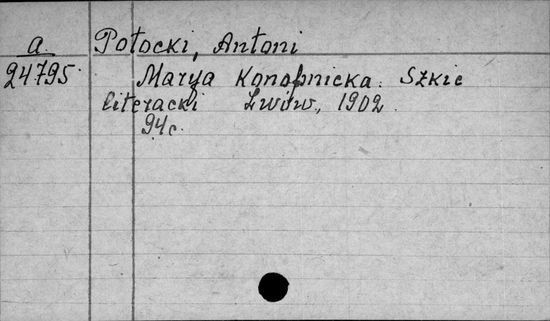 a. Potocki, Antoni
24795 Marya Konopnicka. Szkic
literacki Lwów, 1902.
94 c.